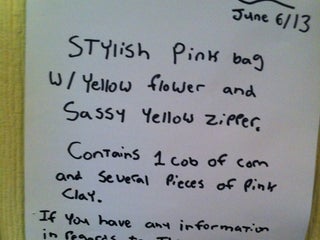 June 6/13
Stylish Pink bag
w/ Yellow flower and
Sassy Yellow Zipper.
Contains 1 cob of corn
and Several Pieces of Pink
Clay.
If you have any information
in regards to